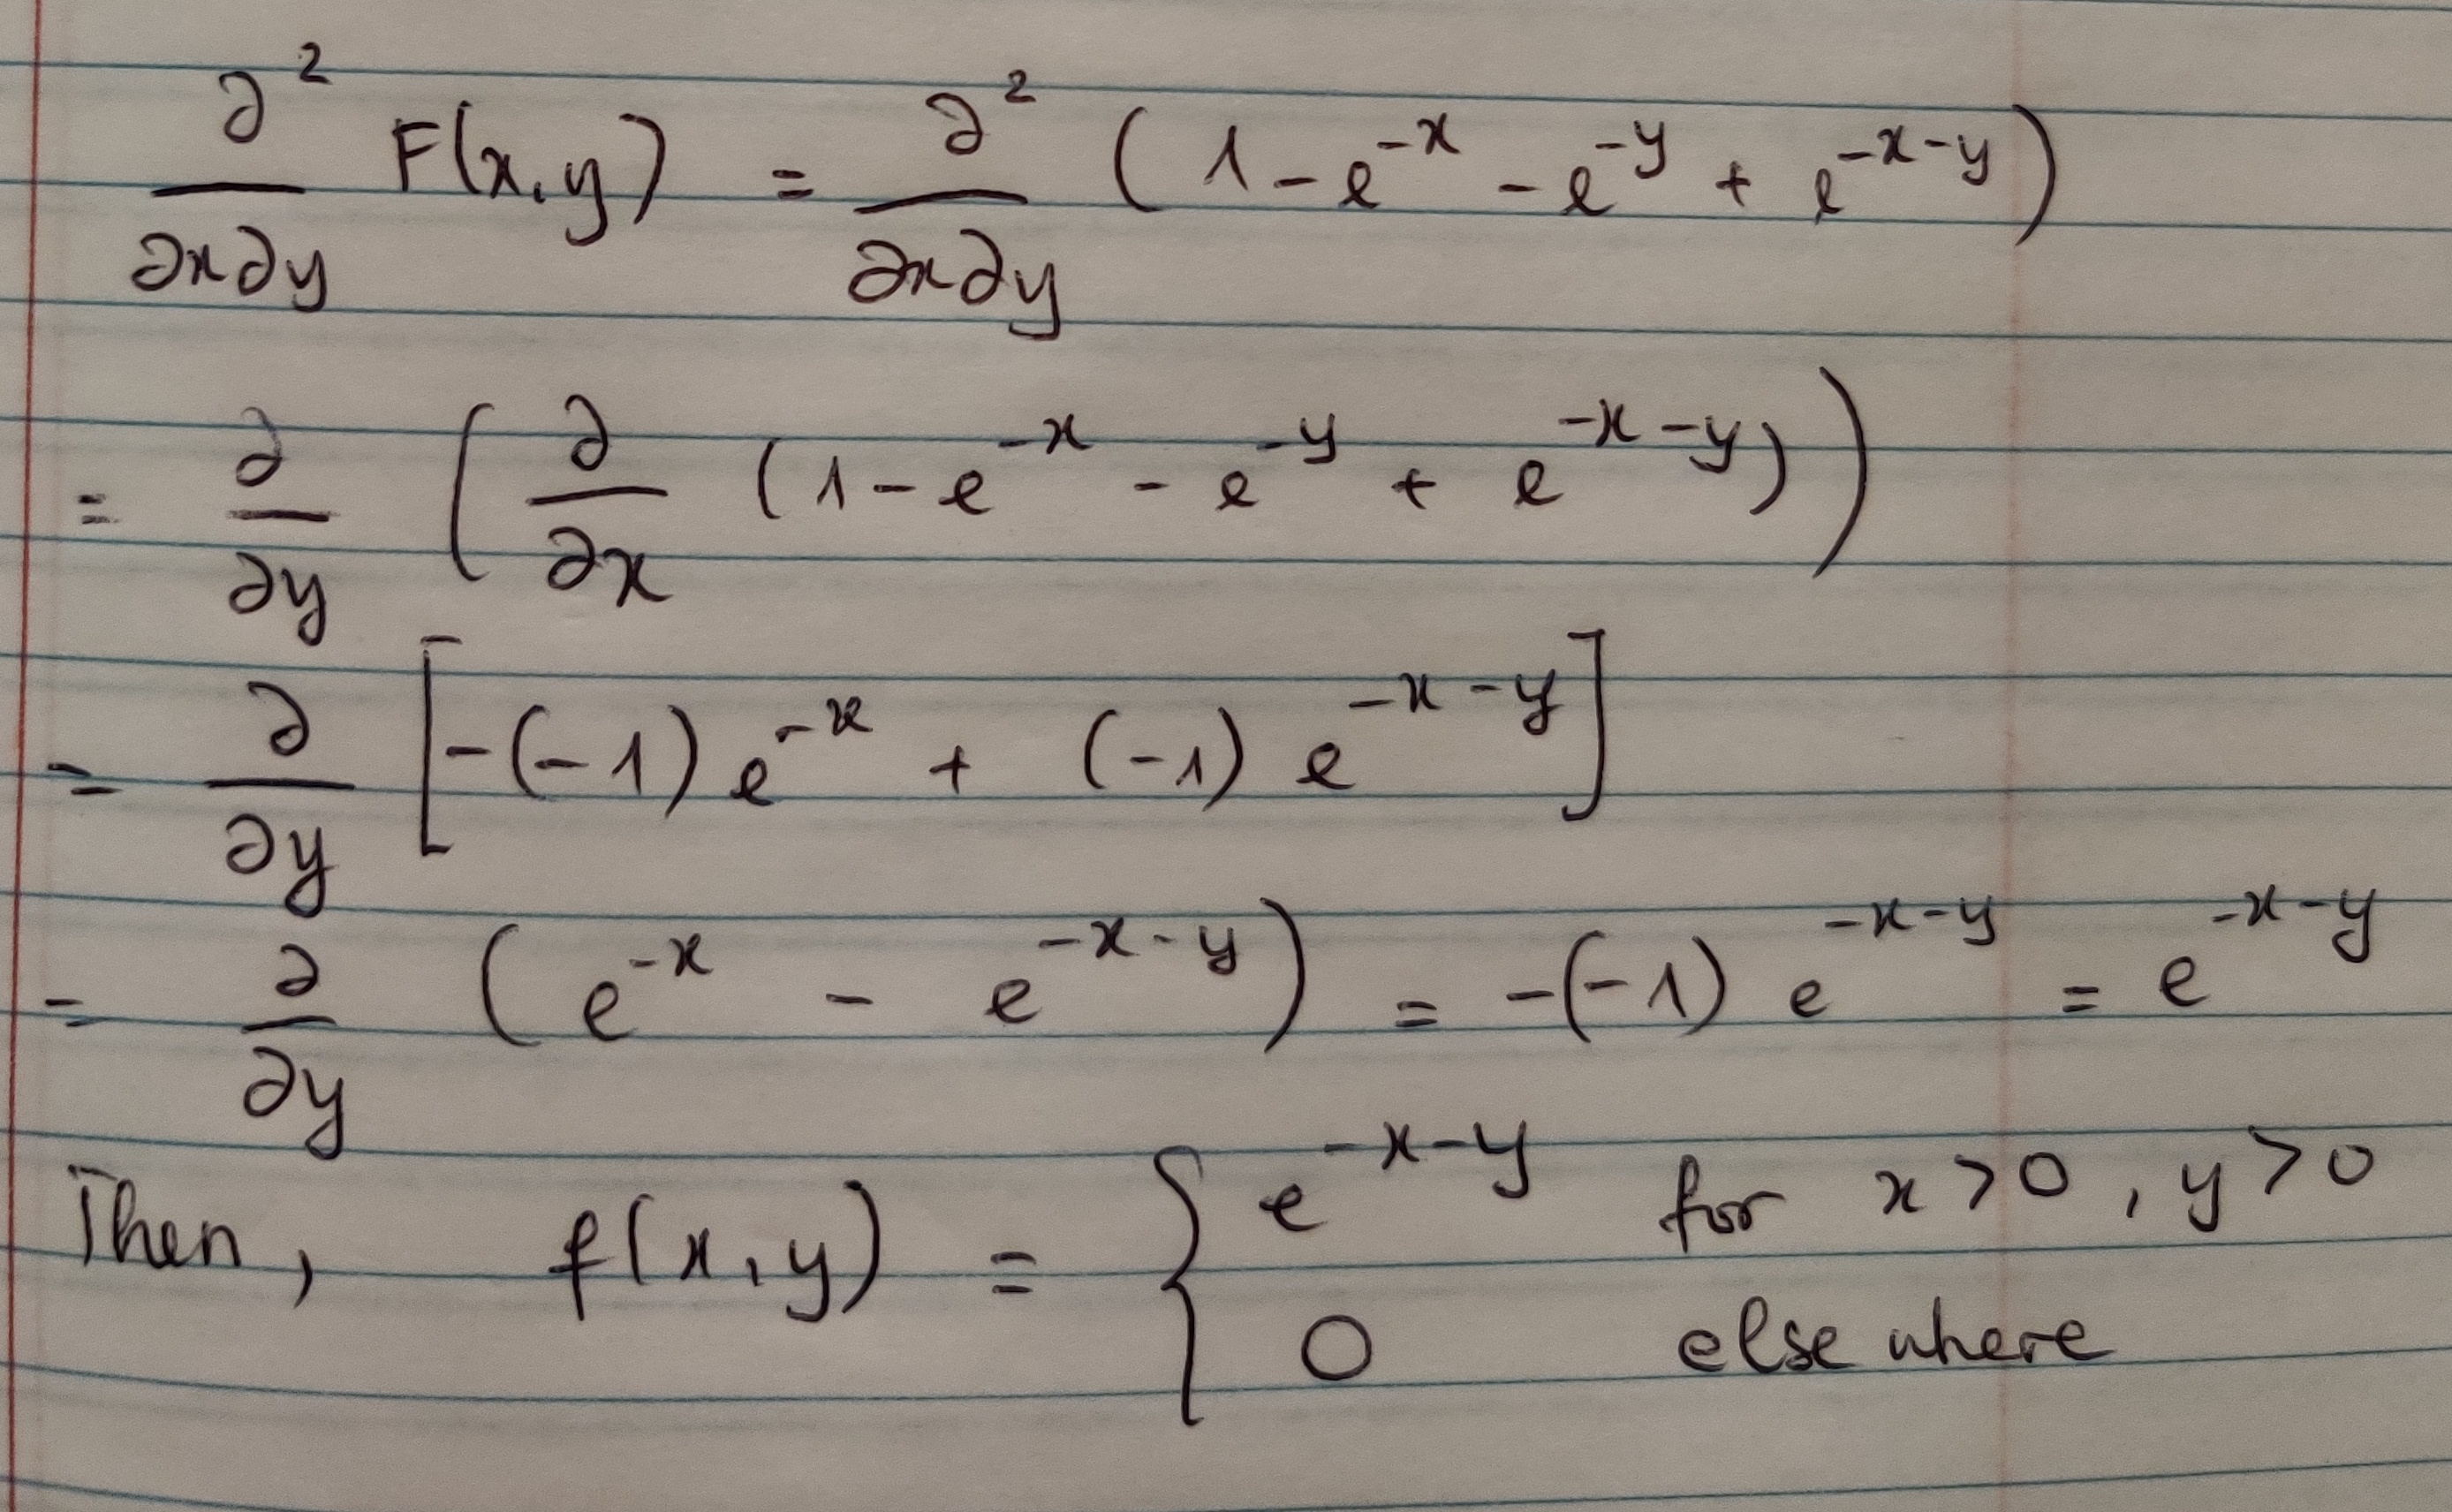 ∂²/∂x∂y F(x,y) = ∂²/∂x∂y (1 - e^{-x} - e^{-y} + e^{-x-y})
= ∂/∂y (∂/∂x (1 - e^{-x} - e^{-y} + e^{-x-y}))
= ∂/∂y [-(-1) e^{-x} + (-1) e^{-x-y}]
= ∂/∂y (e^{-x} - e^{-x-y}) = -(-1) e^{-x-y} = e^{-x-y}
Then, f(x,y) = { e^{-x-y} for x>0, y>0
0 else where